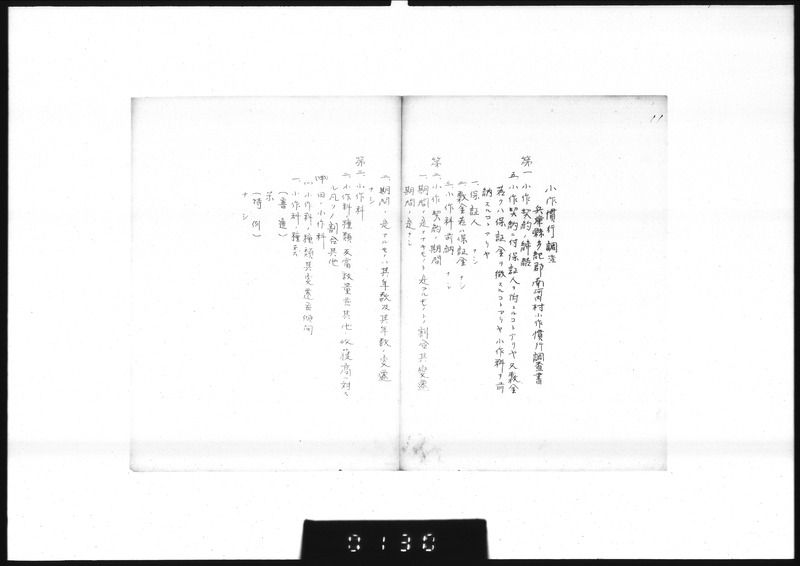 小作慣行調査
兵庫縣多紀郡南河内村小作慣行調査書
第一 小作契約締結
五、小作契約ニ付保証人ヲ附スルコトアリヤ又敷金
若クハ保証金ヲ徴スルコトアリヤ小作料ヲ前
納スルコトアリヤ
一、保証人 ナシ
二、敷金若ハ保証金 ナシ
三、小作料前納 ナシ
第二、小作契約ノ期間
一、期間ノ定メアルモノト定メナキモノトノ割合其変遷
期間ノ定ナシ
二、期間ノ定アルモノハ其年数及其年数ノ変遷
ナシ
第三、小作料
二、小作料ノ種類及当数量並其他収穫高ニ対スル
凡ソノ割合其他
(甲)田ノ小作料
(い)小作料ノ種類其変遷並時間
一、小作料ノ種類
(普通)
米
(特例)
ナシ
0130